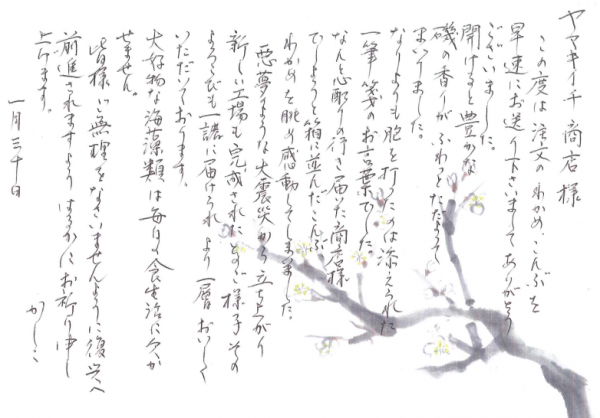 ヤマキイチ商店様
この度は注文のわかめ、こんぶを
早速にお送り下さいましてありがとう
ございました。
開けると豊かな
磯の香りがふわっとただよって
まいりました。
なによりも胸を打ったのは添えられた
一筆箋のお言葉でした。
なんと心配りの行き届いた商店様
でしょうと箱に並んだこんぶ
わかめを眺め感動してしまいました。
悪夢のような大震災から立ち上がり
新しい工場も完成されたとのご様子その
よろこびも一諸に届けられ より一層おいしく
いただいております。
大好物な海藻類は毎日の食生活に欠か
せません。
皆様ご無理をなさいませんように復興へ
前進されますようはるかにお祈り申し
上げます。
かしこ
一月三十日